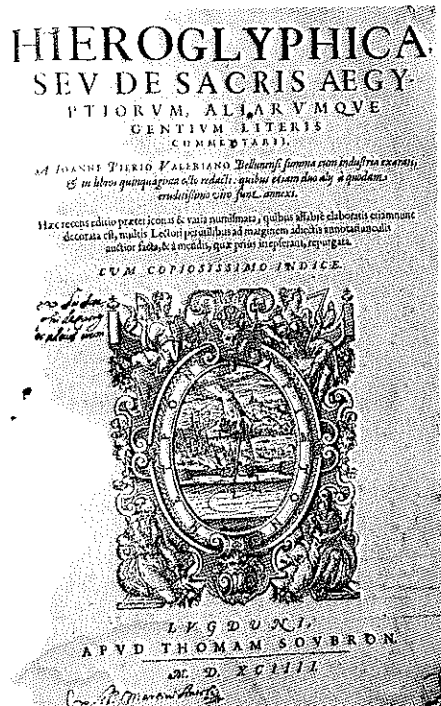 HIEROGLYPHICA,
SEV DE SACRIS AEGY-
PTIORVM, ALIARVMQVE
GENTIVM LITERIS
COMMENTARII,
A IOANNE PIERIO VALERIANO Bellunensi summa cum industria exarati,
& in libros quinquaginta octo redacti: quibus etiam duo alij à quodam
eruditissimo viro sunt annexi.
Hæc recens editio præter iconas & varia numismata, quibus affabrè elaboratis etiamnunc
decorata est, multis Lectori perutilibus ad marginem adiectis annotatiunculis
auctior facta, & à mendis, quæ prius inerant, repurgata.
CVM COPIOSISSIMO INDICE.
LVGDVNI,
APVD THOMAM SOVBRON.
M. D. XCIIII